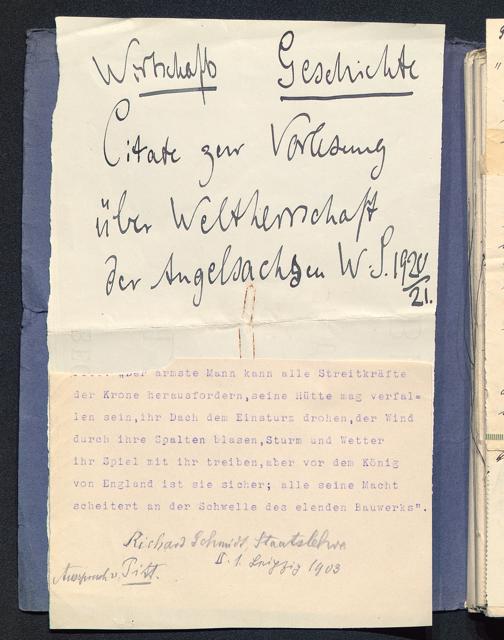 Wirtschafts Geschichte
Citate zur Vorlesung
über Weltherrschaft
der Angelsachsen W.S. 1920/21.
"Der ärmste Mann kann alle Streitkräfte
der Krone herausfordern,seine Hütte mag verfal=
len sein,ihr Dach dem Einsturz drohen,der Wind
durch ihre Spalten blasen,Sturm und Wetter
ihr Spiel mit ihr treiben,aber vor dem König
von England ist sie sicher; alle seine Macht
scheitert an der Schwelle des elenden Bauwerks".
Richard Schmidt, Staatslehre
II. 1. Leipzig 1903
Ausspruch v. Pitt.